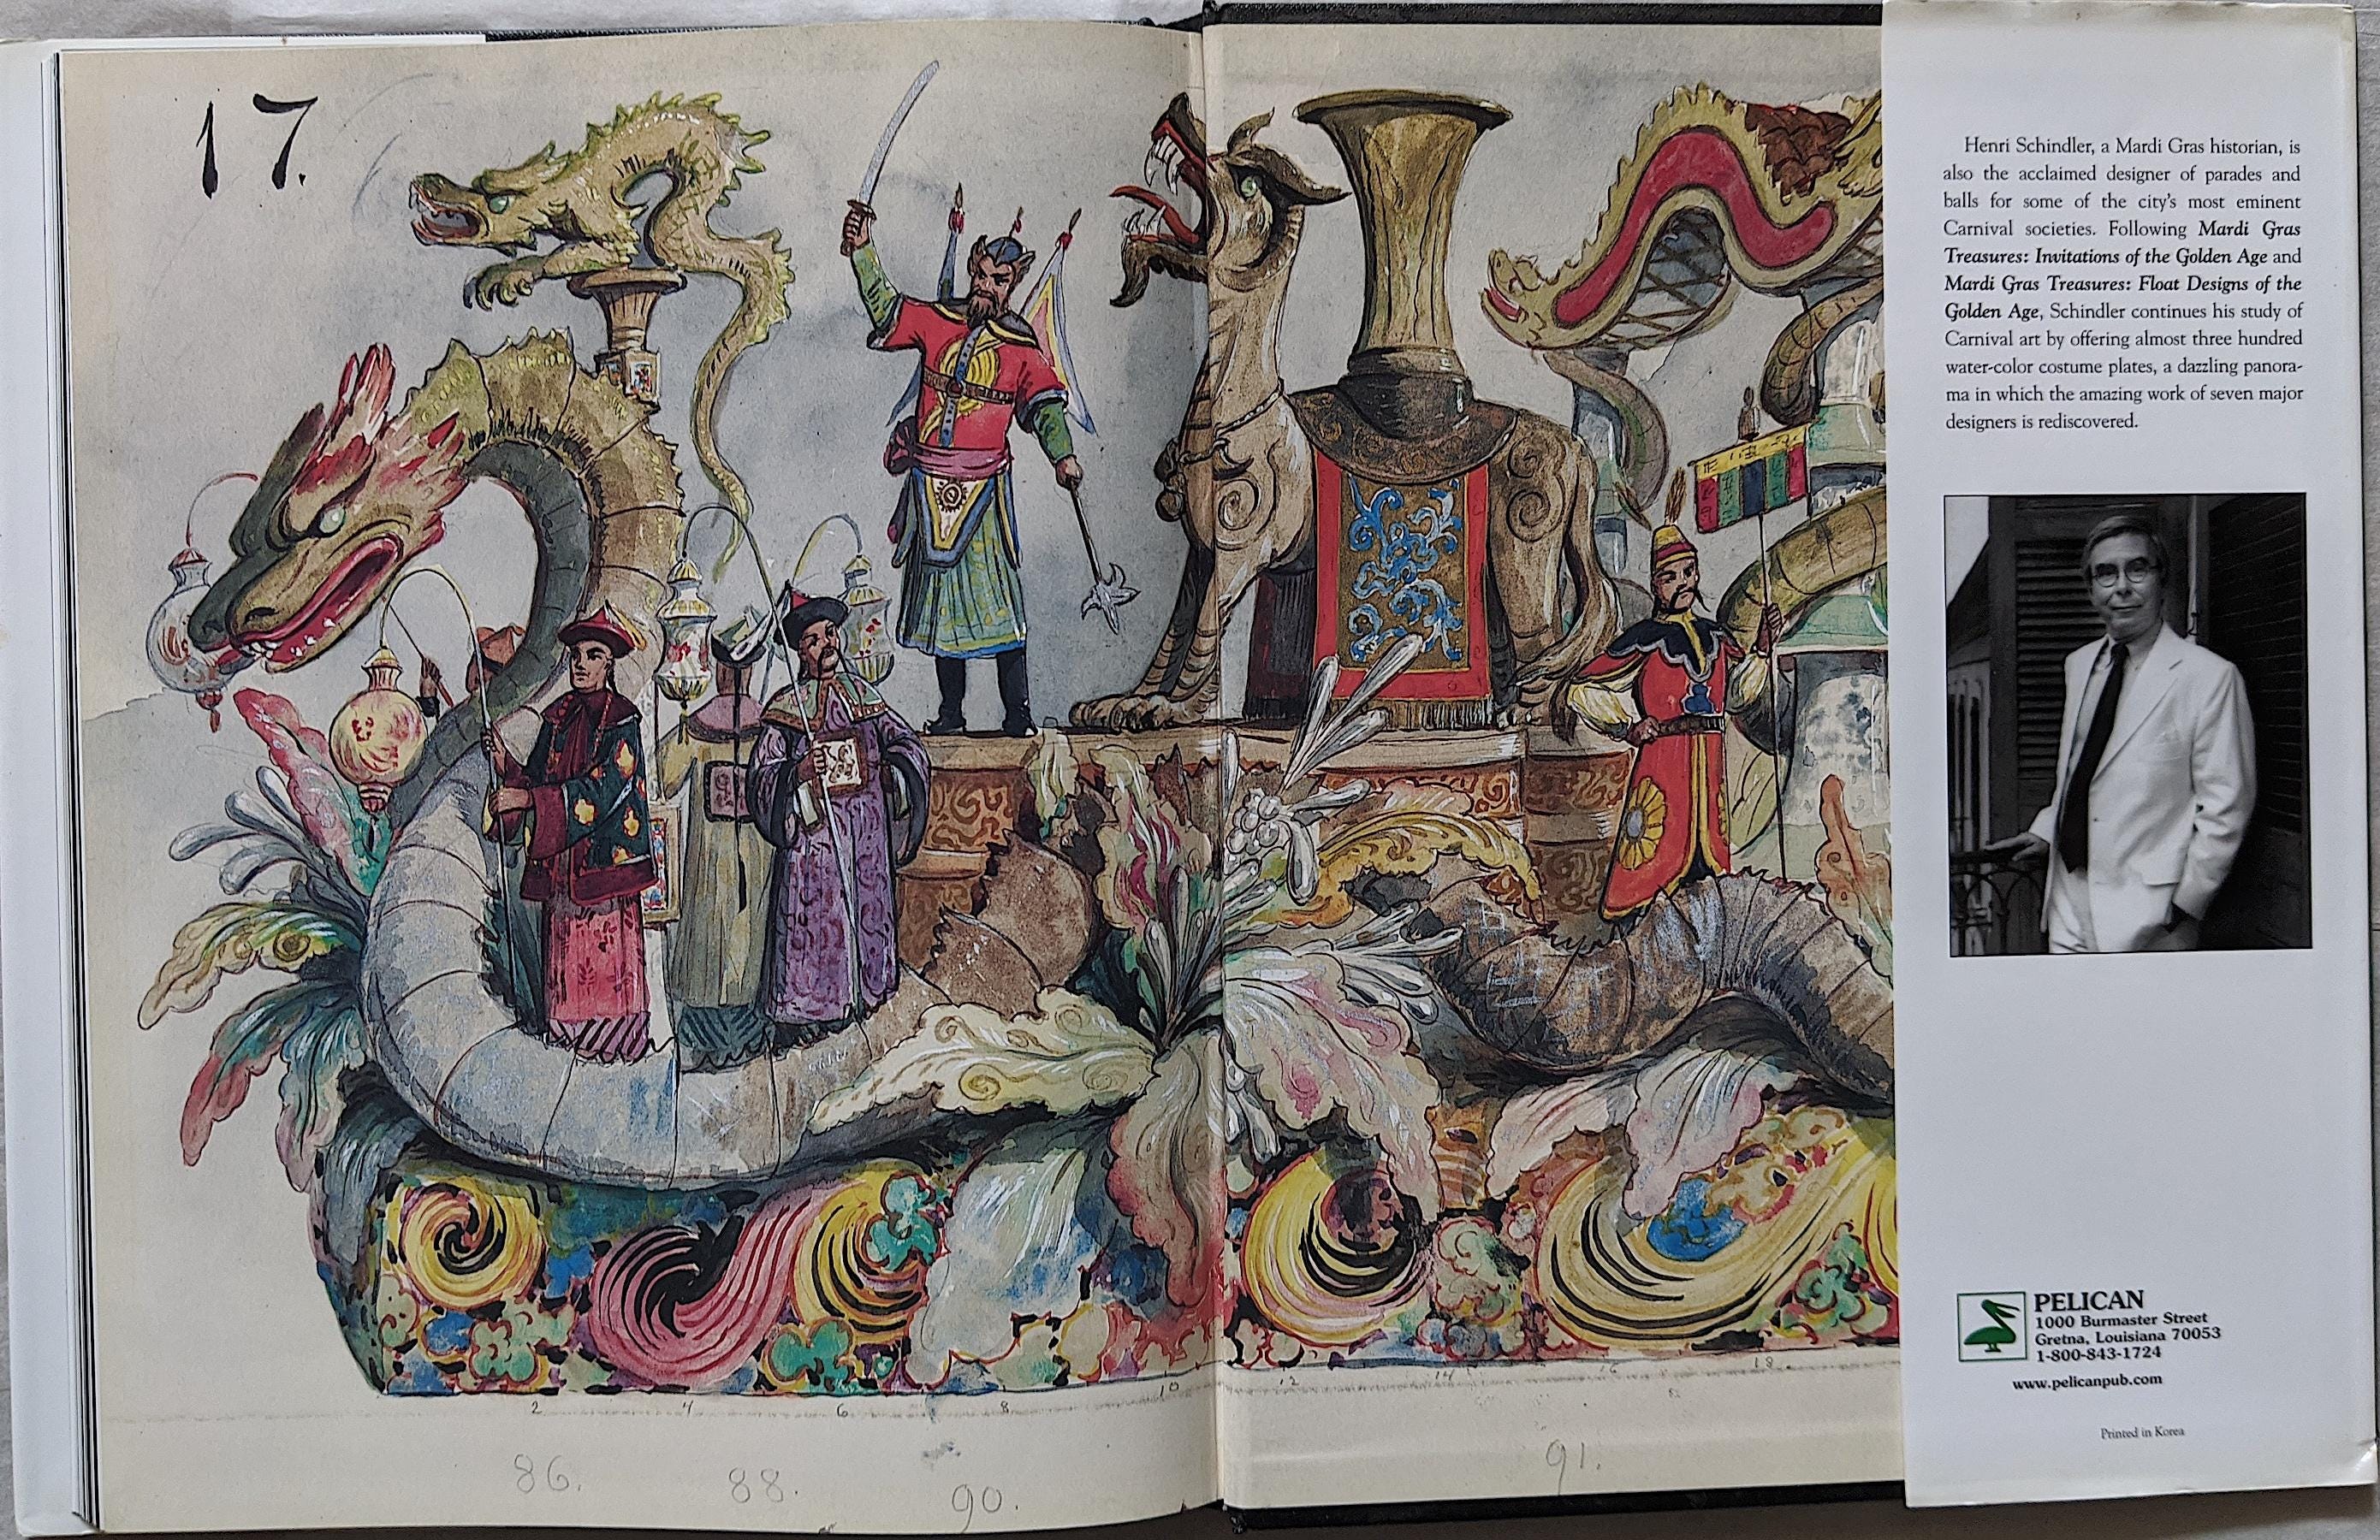 17.
2 4 6 8 10 12 14 16 18
86. 88. 90. 91.
Henri Schindler, a Mardi Gras historian, is
also the acclaimed designer of parades and
balls for some of the city's most eminent
Carnival societies. Following Mardi Gras
Treasures: Invitations of the Golden Age and
Mardi Gras Treasures: Float Designs of the
Golden Age, Schindler continues his study of
Carnival art by offering almost three hundred
water-color costume plates, a dazzling panora-
ma in which the amazing work of seven major
designers is rediscovered.
PELICAN
1000 Burmaster Street
Gretna, Louisiana 70053
1-800-843-1724
www.pelicanpub.com
Printed in Korea